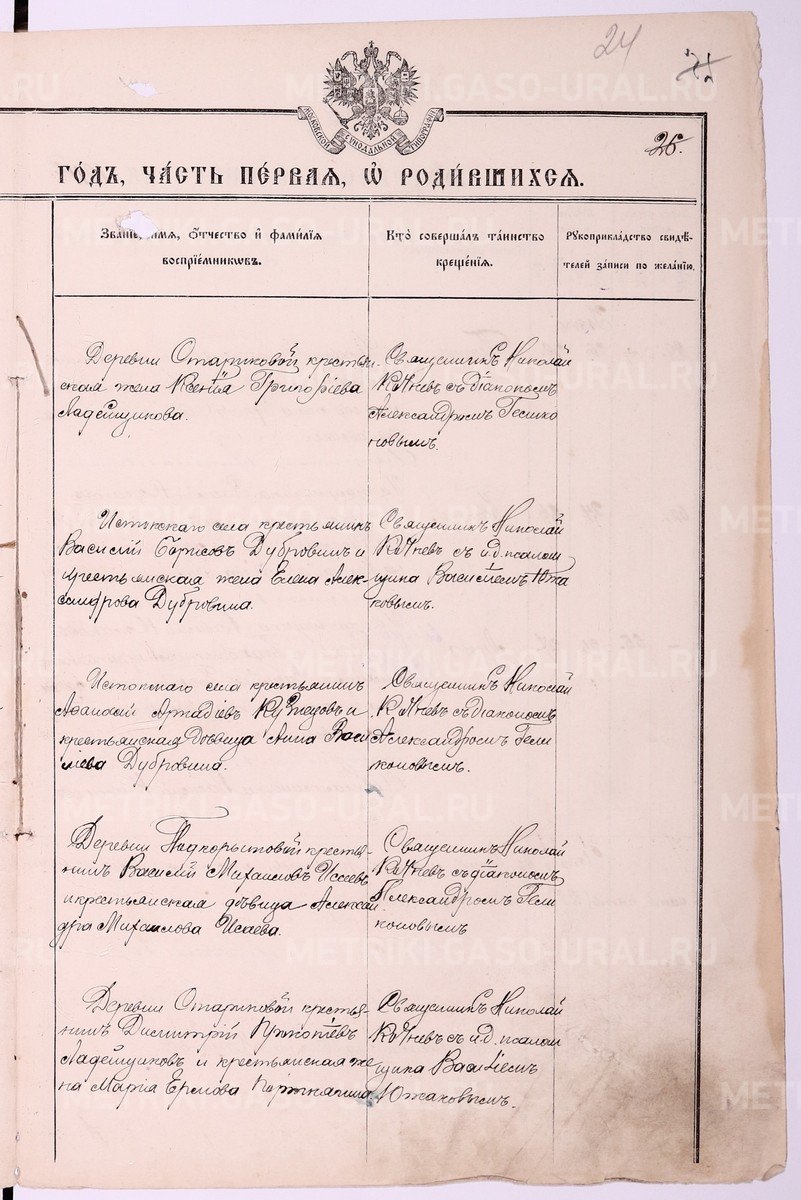 24
26.
МОСКОВСКОЙ СѴНОДАЛЬНОЙ ТИПОГРАФІИ
ГО́ДЪ, ЧА́СТЬ ПЕ́РВАЯ, Ѽ РОДИ́ВШИХСЯ.
Зва́ніе, и́мя, о́тчество и҆ фами́лїя
воспрїе́мникѡвъ.
Кто̀ соверша́лъ та́инство
креще́нїя.
Рꙋкоприкла́дство свидѣ́-
телей за́писи по жела́нїю.
Деревни Стариковой крестьян-
ская жена Ксенія Григоріева
Ладейщикова.
Священникъ Николай
съ діакономъ
Александромъ Гелико
новымъ.
Истокскаго села крестьянинъ
Василій Борисовъ Дубровинъ и
крестьянская жена Елена Алек-
сандрова Дубровина.
Священникъ Николай
съ и.д. псалом
щика Василіемъ Южа
ковымъ.
Истокскаго села крестьянинъ
Аѳанасій Аркадіевъ и
крестьянская дѣвица Анна Васи
лева Дубровина.
Священникъ Николай
съ діакономъ
Александромъ Гели
коновымъ.
Деревни Подкорытовой крестья-
нинъ Василій Михаиловъ Исаевъ
и крестьянская дѣвица Алексан
дра Михаилова Исаева.
Священникъ Николай
съ діакономъ
Александромъ Гели
коновымъ
Деревни Стариковой крестья-
нинъ Димитрій Прокопіевъ
Ладейщиковъ и крестьянская же
на Марія Ермова
Священникъ Николай
съ и.д. псалом
щика Василіемъ
Южаковымъ.
METRIKI.GASO-URAL.RU